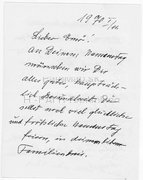 1970 I/11.
Lieber Emö!
An Deinem Namenstag
wünschen wir Dir
alles gute, hauptsäch-
lich Gesundheit. Du
sollst noch viel glückliche
und fröhliche Namenstag
feiern, in deinem lieben
Familienkreis.